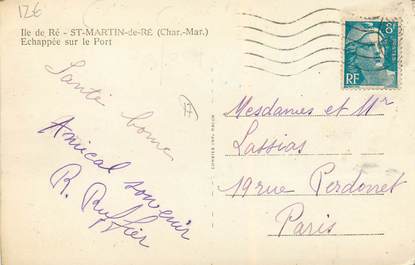 12€
Ile de Ré - ST-MARTIN-de-RÉ (Char.-Mar.)
Echappée sur le Port
Santé bonne
Amical souvenir
R.
8F
RF
Mesdames et Mr
Lassias
19 rue Perdonnet
Paris